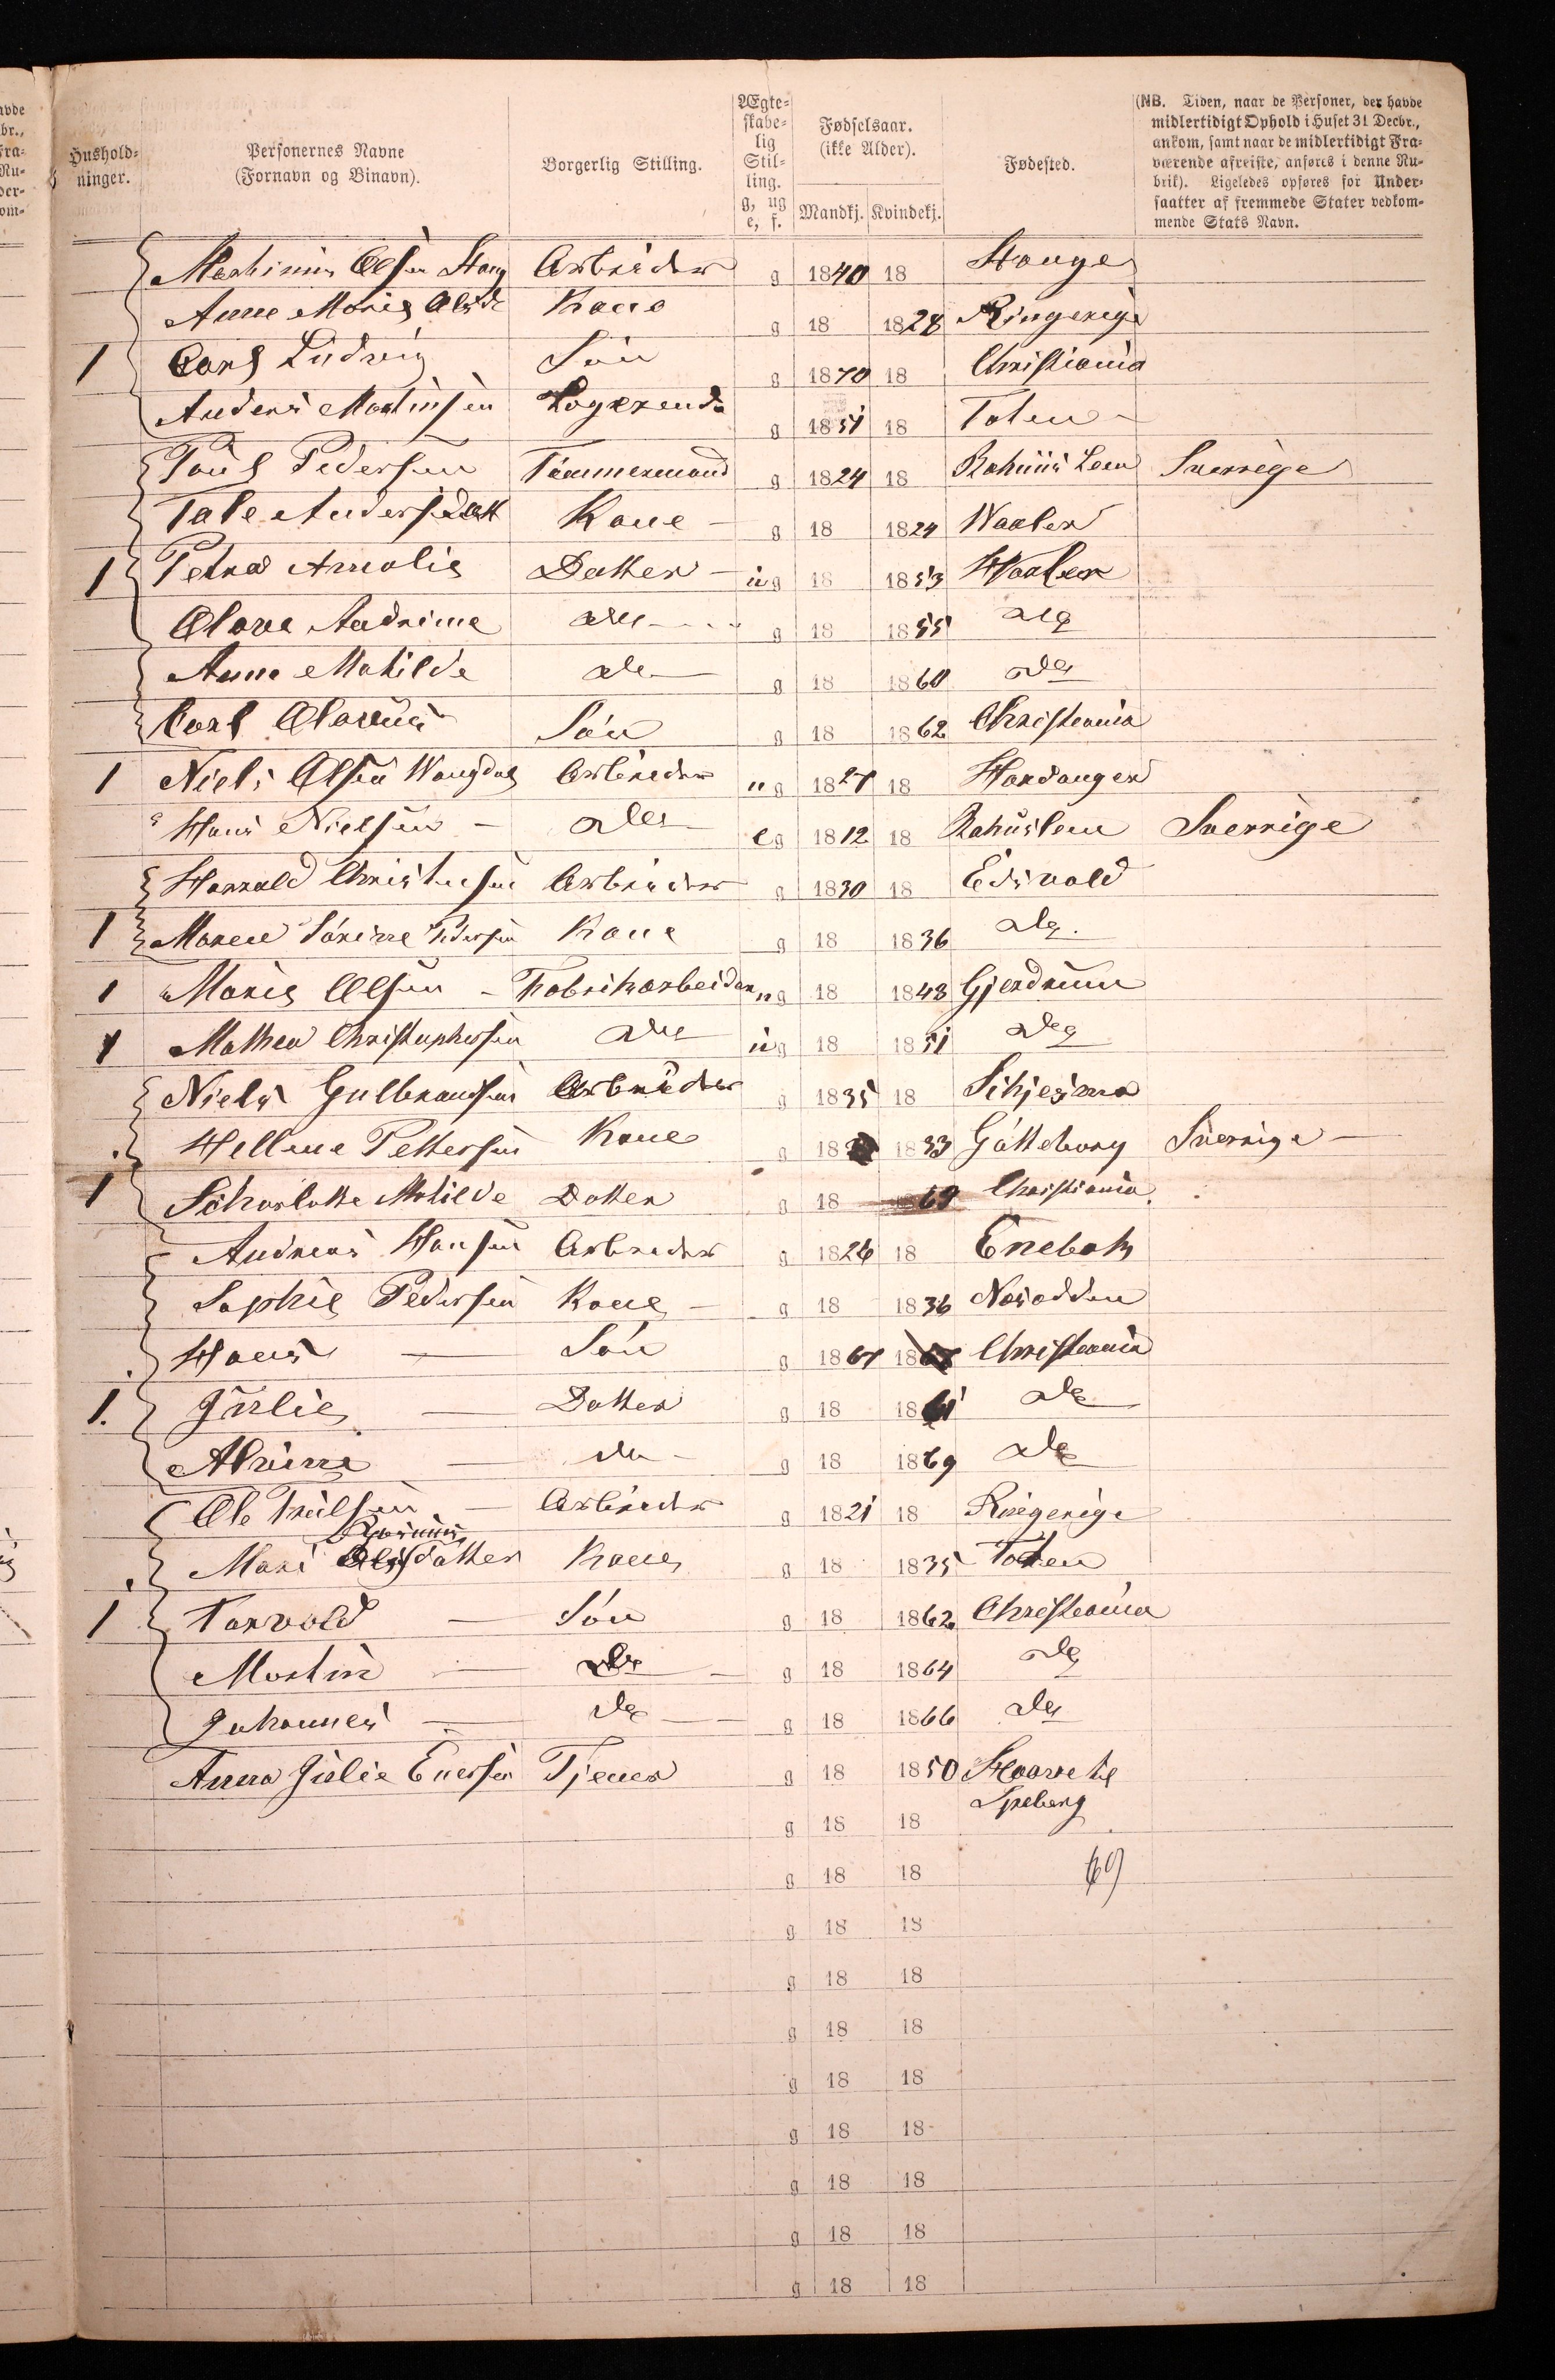 Hushold-
ninger.
Personernes Navne
(Fornavn og Binavn).
Borgerlig Stilling.
Ægte-
skabe-
lig
Stil-
ling.
g, ug
e, f.
Fødselsaar.
(ikke Alder).
Mandkj. Kvindekj.
Fødested.
(NB. Tiden, naar de Personer, der havde
midlertidigt Ophold i Huset 31 Decbr.,
ankom, samt naar de midlertidigt Fra-
værende afreiste, anføres i denne Ru-
brik). Ligeledes opføres for Under-
saatter af fremmede Stater vedkom-
mende Stats Navn.
Olsen Arbeider g 1840 18 Stange
Anne Marie Kone g 18 1828 Ringerige
1 Carl Ludvig Søn g 1870 18 Christiania
Anders Martinsen Logerende g 1851 18 Toten
Poul Pedersen Tømmermand g 1824 18 Bahuus Leen Sverrige
Tale Andersdatt Kone g 18 1824 Waaler
1 Petra Amalie Datter ug 18 1853 Waaler
Olava Andrine do g 18 1855 do
Anne Mathilde do g 18 1860 do
Carl Olavus Søn g 18 1862 Christiania
1 Niels Olsen Wangdal Arbeider ug 1827 18 Hardanger
Hans Nielsen do eg 1812 18 Bahuslen Sverrige
Harrald Christensen Arbeider g 1830 18 Eidsvold
1 Maren Sørine Pedersen Kone g 18 1836 do.
1 Marie Olsen Fabrikarbeider ug 18 1848 Gjerdrum
1 Mathea Christophersen do ug 18 1851 do
Niels Gulbrandsen Arbeider g 1835 18 Schjesmo
Hellene Pettersen Kone g 18 1833 Gøtteborg Sverrige
1 Scharlotte Matilde Datter g 18 69 Christiania
Andreas Hansen Arbeider g 1826 18 Enebak
Sophie Pedersen Kone g 18 1836 Næsodden
Hans Søn g 1867 18 Christiania
1. Julie Datter g 18 1861 do
Alvine do g 18 1869 do
Ole Arbeider g 1821 18 Ringerige
Rasmus
Mari datter Kone g 18 1835 Toten
1 Torvald Søn g 18 1862 Christiania
Martin do g 18 1864 do
Johannes do g 18 1866 do
Anna Julie Enersen Tjener g 18 1850
g 18 18
g 18 18
g 18 18
g 18 18
g 18 18
g 18 18
g 18 18
g 18 18
g 18 18
g 18 18